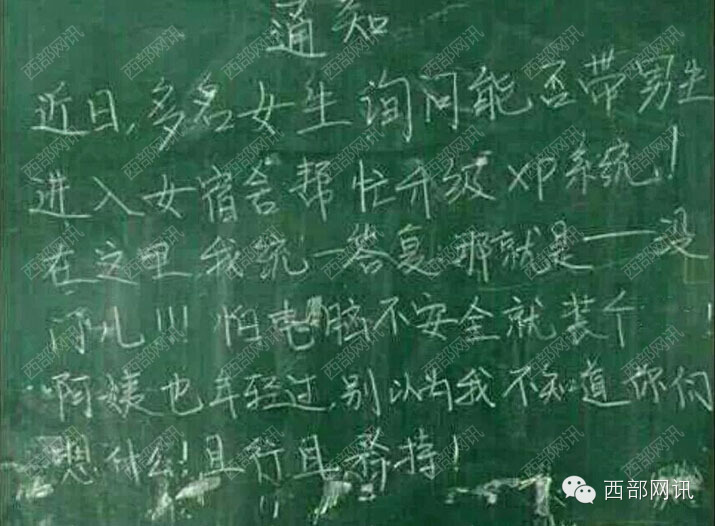 通知
近日,多名女生询问能否带男生
进入女宿舍帮忙升级XP系统!
在这里我统一答复,那就是——没
门儿!!!怕电脑不安全就装个
阿姨也年轻过,别以为我不知道你们
想什么!且行且矜持!
西部网讯